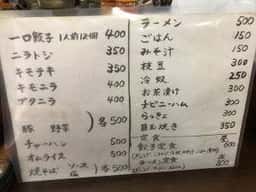 一口餃子 1人前12個 400
ニラトジ 350
キモテキ 350
キモニラ 400
ブタニラ 400
豚 野菜 各500
チャーハン 500
オムライス 500
焼そば ソース 塩 各500
ラーメン 500
ごはん 150
みそ汁 150
枝豆 300
冷奴 250
お茶漬け 300
チビニーハム 300
らっきょ 300
豚玉焼き 350
定食
餃子定食 600
ラーメン定食 800